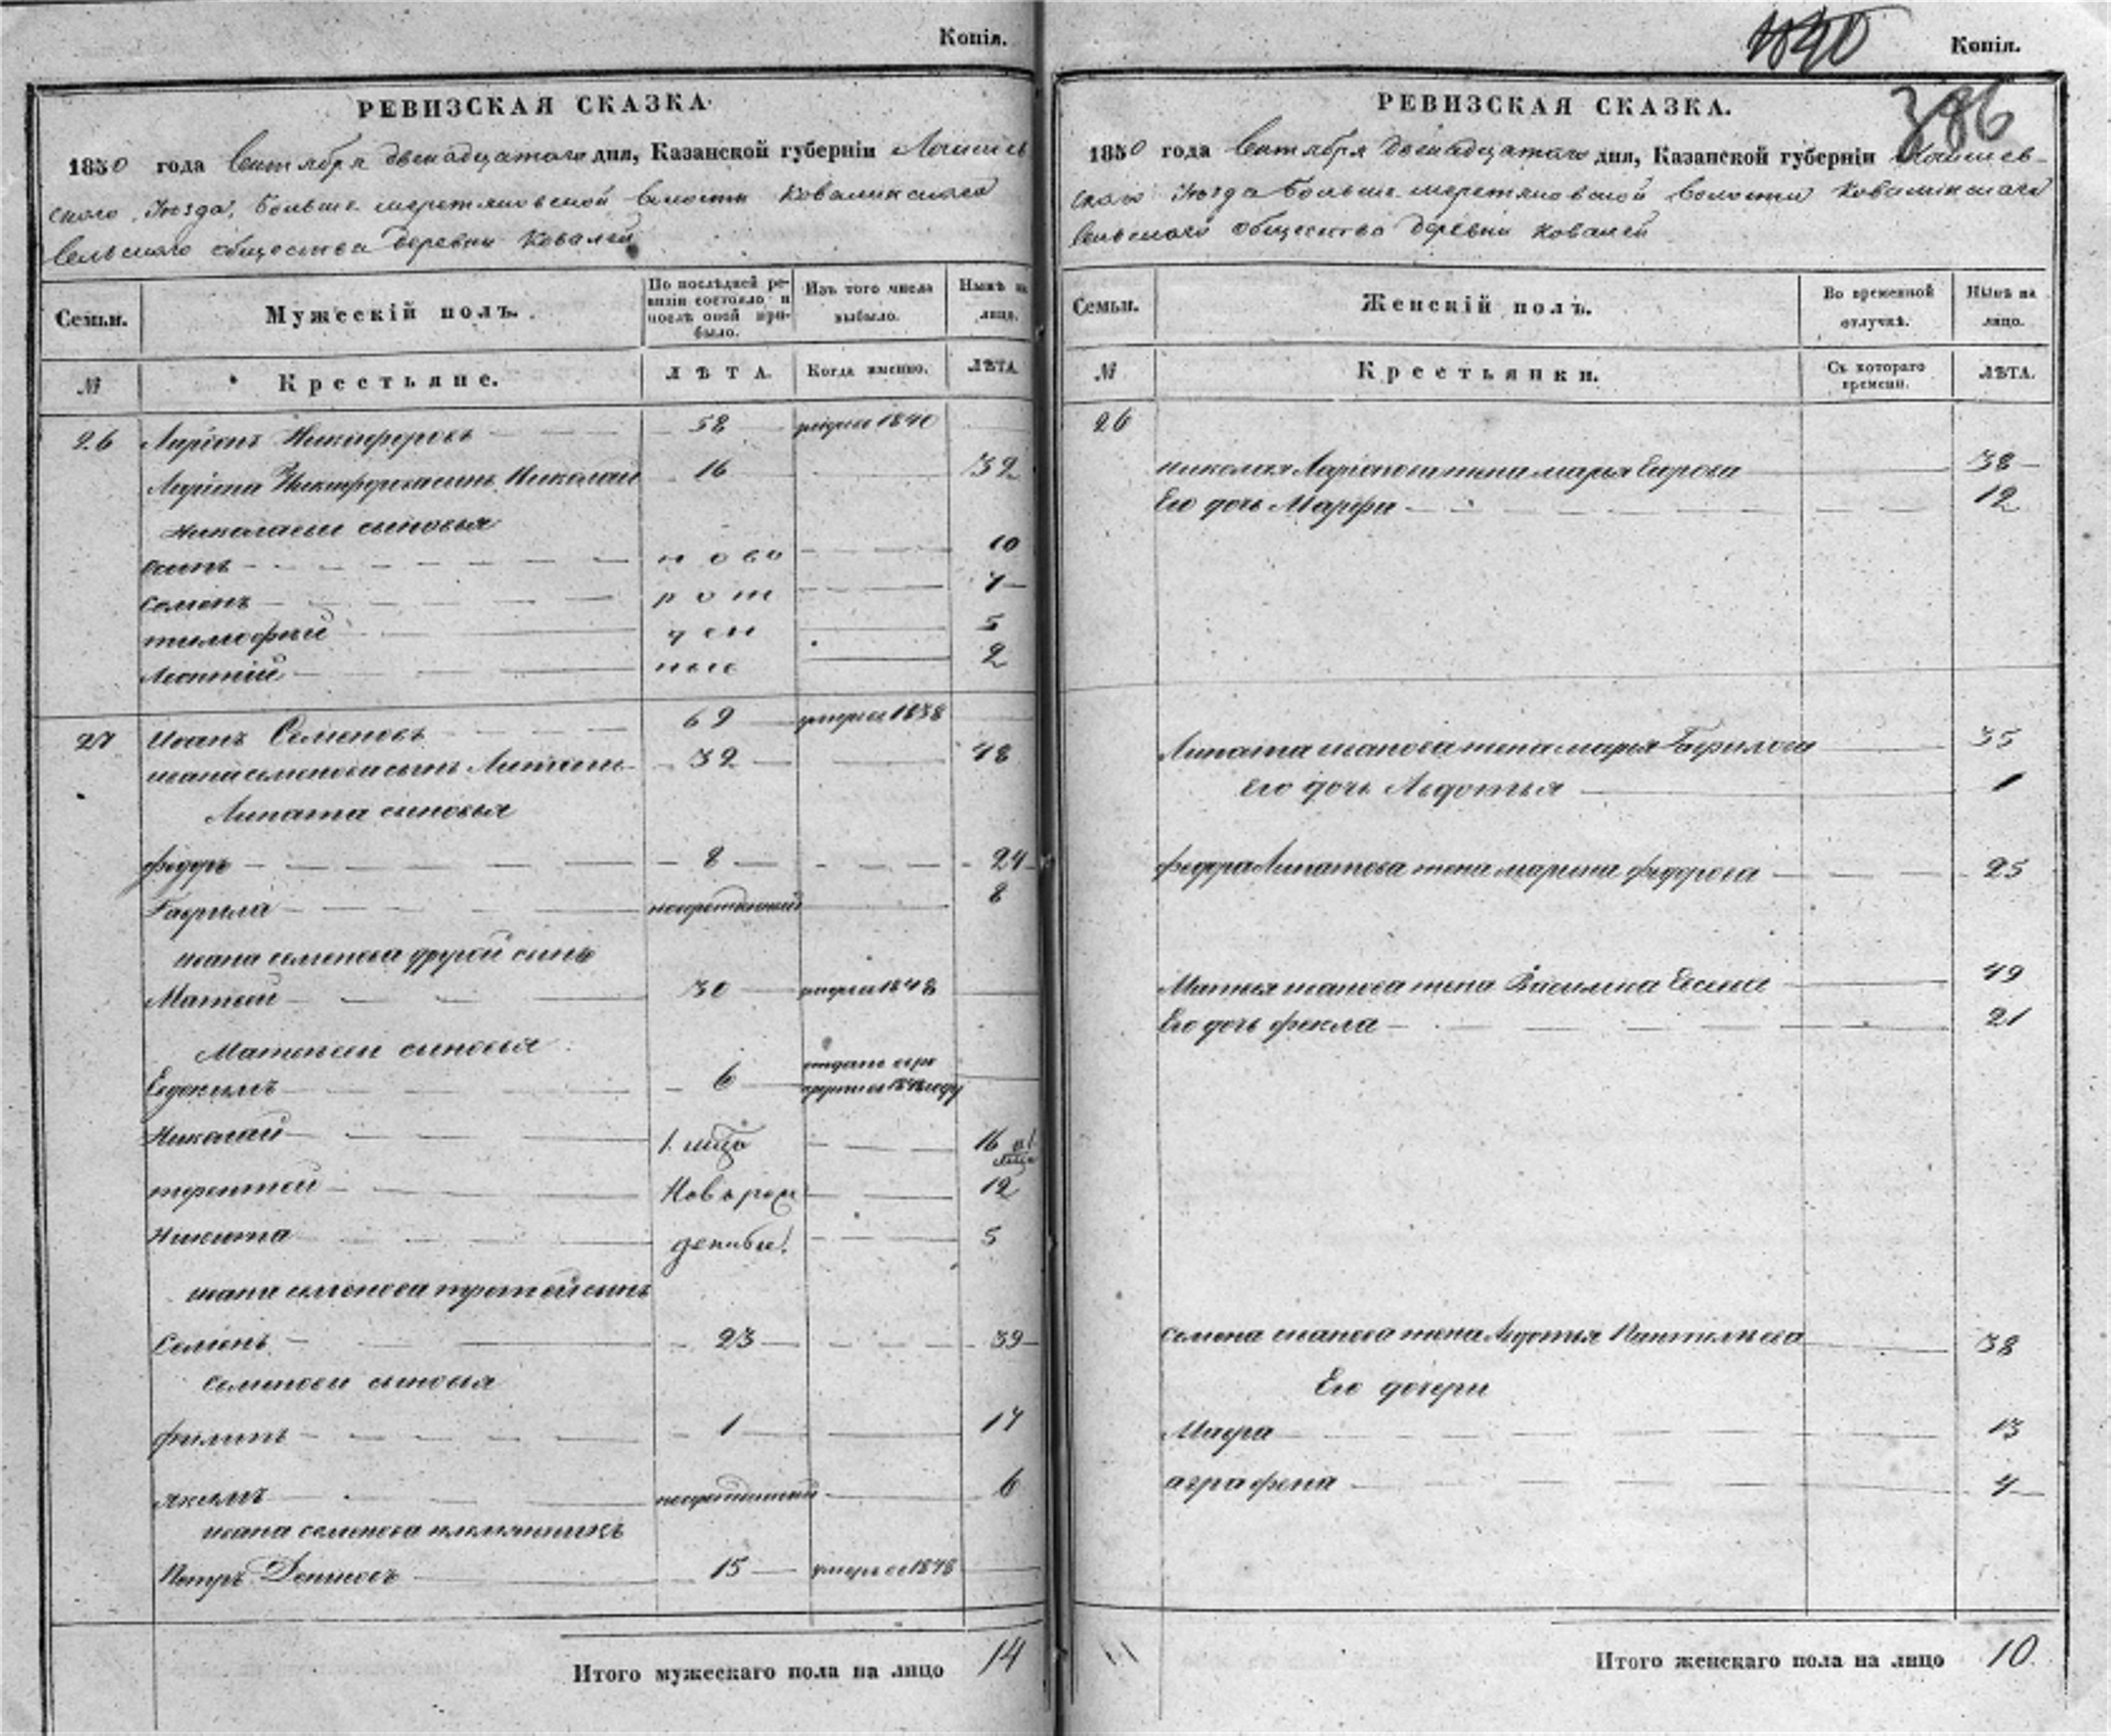 Копія.
РЕВИЗСКАЯ СКАЗКА
1850 года Сентября двенадцатого дня, Казанской губерніи Лаишев
ского Уезда, больше меретяковской волости Ковалинского
Сельского общества деревни Ковалей
Семьи.
Мужескій полъ.
По послѣдней ре-
визіи состояло и
послѣ оной при-
было.
Изъ того числа
выбыло.
Нынѣ на
лицо.
№
Крестьяне.
ЛѢТА.
Когда именно.
ЛѢТА.
26 Ларіонъ Никифоровъ 58 1840
Ларіона Никифорова сынъ Николай 16 32
Николаевы сыновья
осипъ ново 10
семенъ рож 7
тимофей ден
5
Леонтій ные 2
27 Иванъ Семеновъ 69 умеръ 1838
ивана семенова сынъ Липатъ 32 48
Липата сыновья
федоръ 8 24
Гаврила новорожденный 8
ивана семенова другой сынъ
Матвей 30 умеръ 1848
Матвеевы сыновья
Евдокимъ 6 отданъ
Николай 1. 16
терентей Новорож 12
Никита денные 5
ивана семенова третей сынъ
Семенъ 23 39
семеновы сыновья
филипъ 1 17
якимъ новорожденный 6
ивана семенова племянникъ
Петръ Денисовъ 15 умеръ 1846
Итого мужескаго пола на лицо 14
1840
Копія.
386
РЕВИЗСКАЯ СКАЗКА.
1850 года Сентября двенадцатого дня, Казанской губерніи Лаишев-
ского Уезда больше меретяковской волости Ковалинского
Сельского общества деревни Ковалей
Семьи.
Женскій полъ.
Во временной
отлучкѣ.
Нынѣ на
лицо.
№
Крестьянки.
Съ котораго
времени.
ЛѢТА.
26
николая Ларіонова жена марья Егорова 38
Его дочь Марфа 12
Липата иванова жена марья Гаврилова 35
его дочь Авдотья 1
федора Липатова жена марина федорова 25
Матвея иванова жена Василиса 49
Его дочь фекла 21
семена иванова жена Авдотья 38
Его дочери
Мавра 13
аграфена 4
Итого женскаго пола на лицо 10